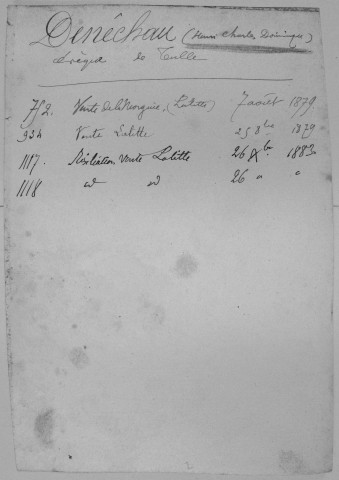 Dénéchau (Henri Charles Dominique)
évêque de Tulle
752. Vente de la Morguie, (Lalitte) 7 août 1879
934 Vente Lalitte 25 8bre 1879
1117. Résiliation vente Lalitte 26 Xbre 1883
1118 id id 26 " "
2